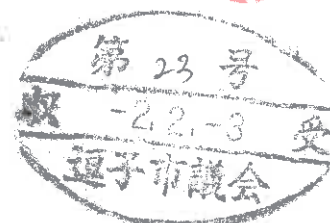 第 23 号
収 -2.2.-3 受
逗子市議会